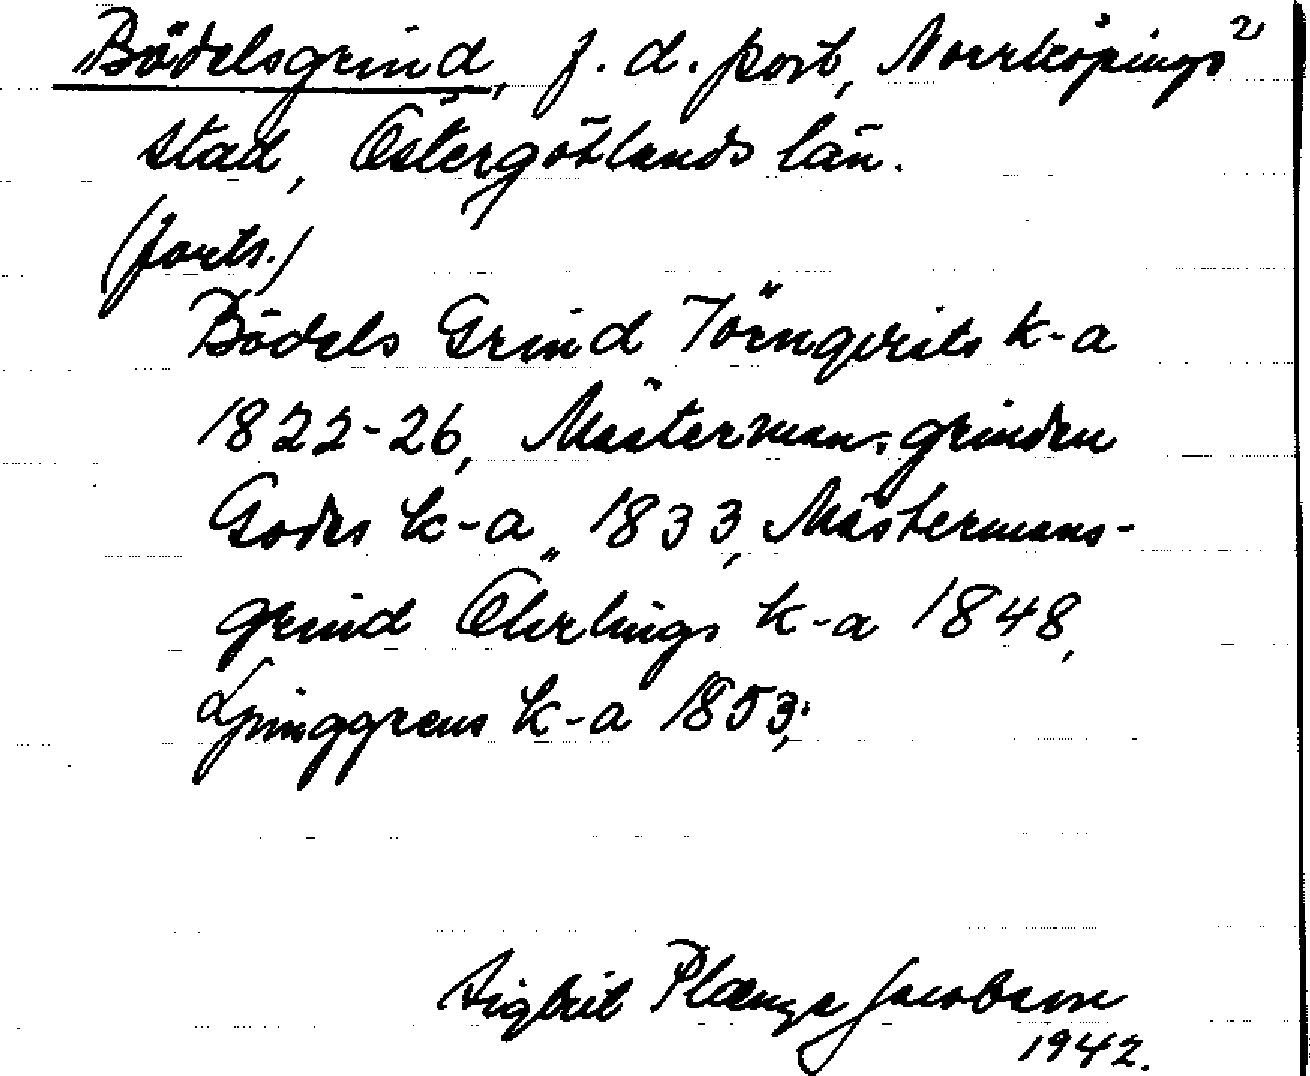 Bödelsgrind, f. d. port, Norrköpings 2
stad, Östergötlands län.
(forts.)
Bödels Grind Törnqvists k-a
1822-26, Mästermansgrinden
Godes k-a 1833, Mästermans-
grind Öhrlings k-a 1848,
Ljunggrens k-a 1853;
Sigbrit Plænge Jacobson
1942.